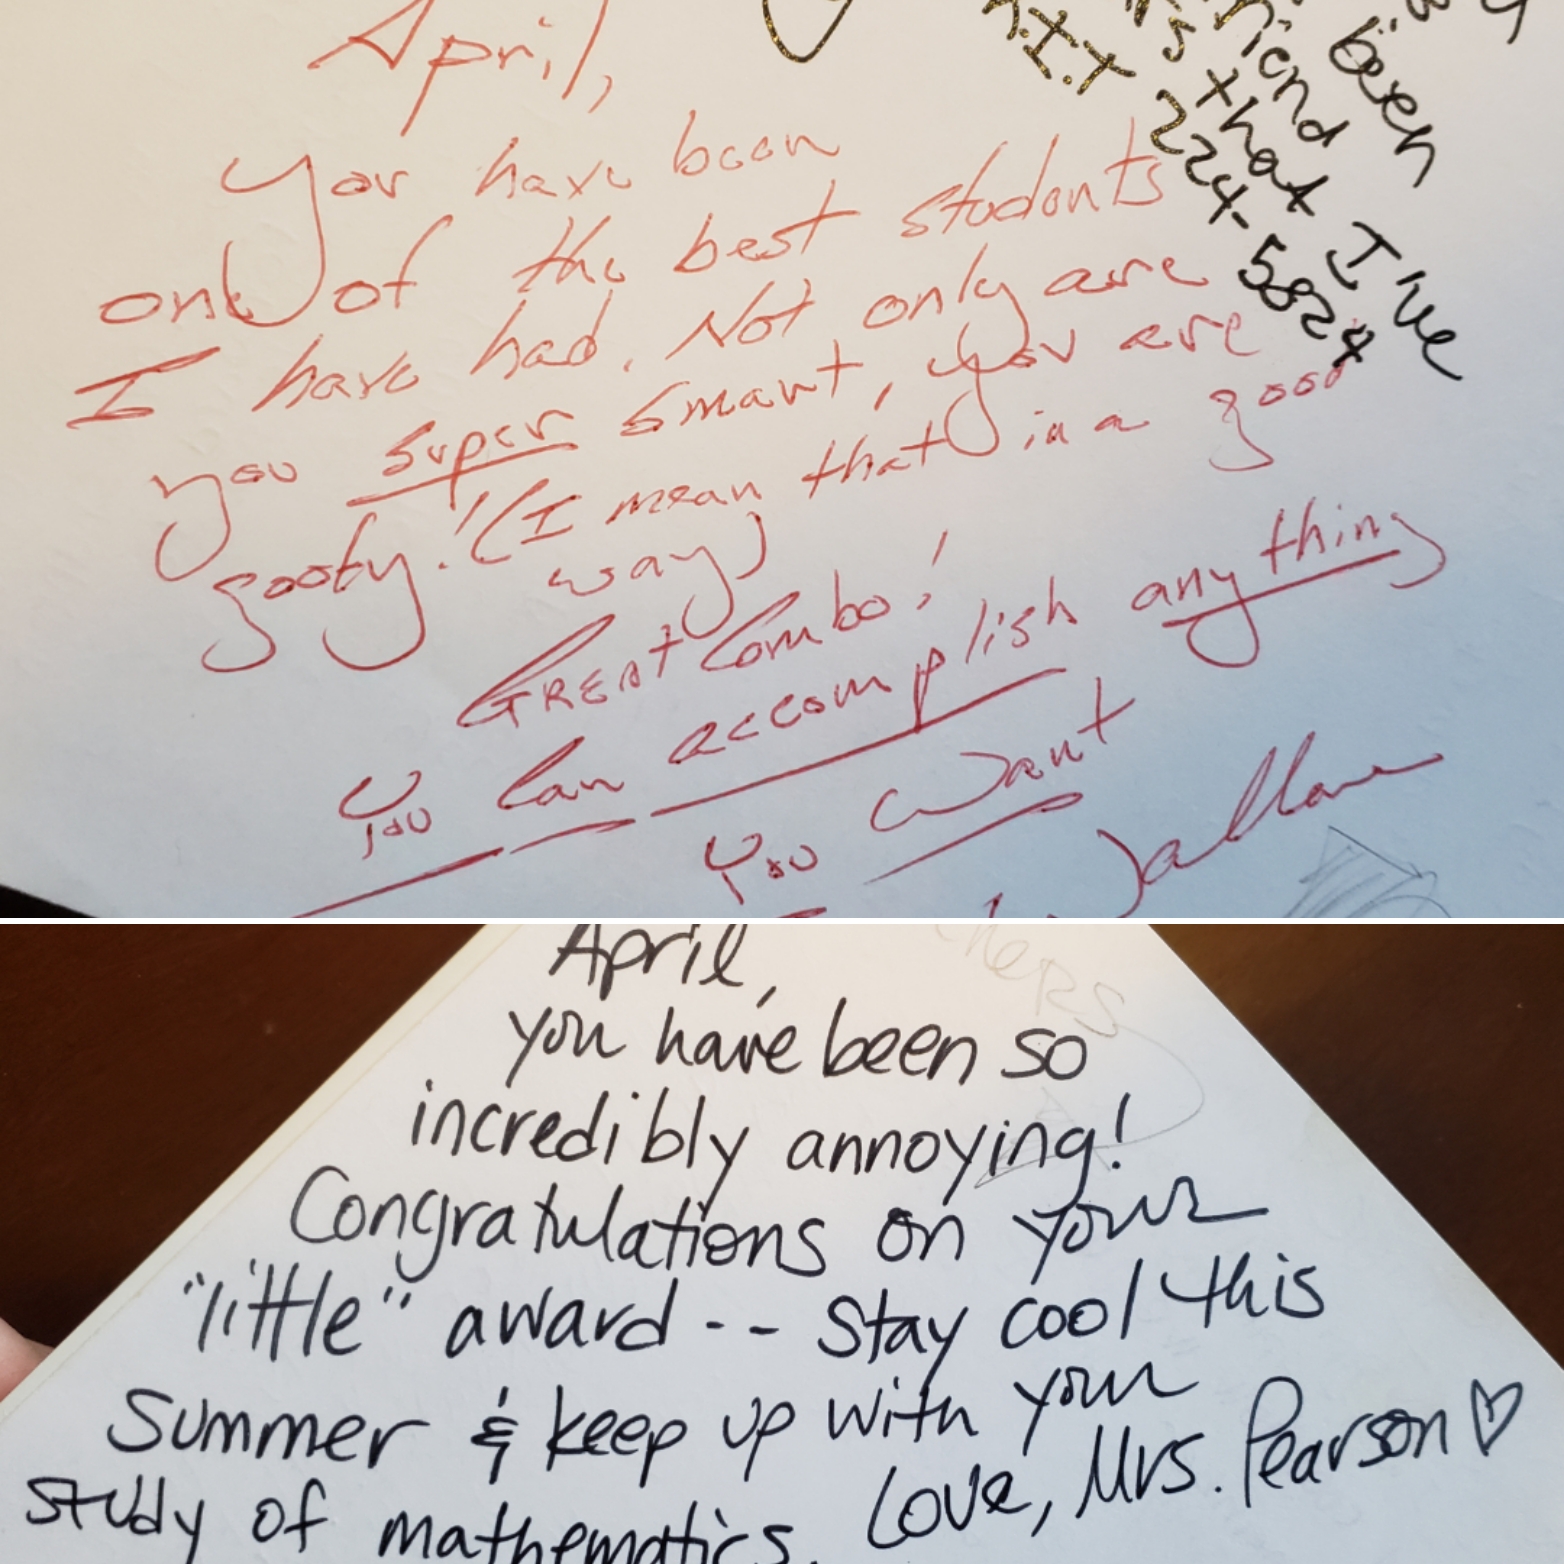 April,
You have been
one of the best students
I have had. Not only are
you super smart, you are
goofy! (I mean that in a good
way)
GREAT Combo!
You Can accomplish anything
you want
Wallace
been
friend
's that I've
K.I.T 224-5824
April,
you have been so
incredibly annoying!
Congratulations on your
"little" award -- Stay cool this
Summer & keep up with your
study of mathematics. Love, Mrs. Pearson